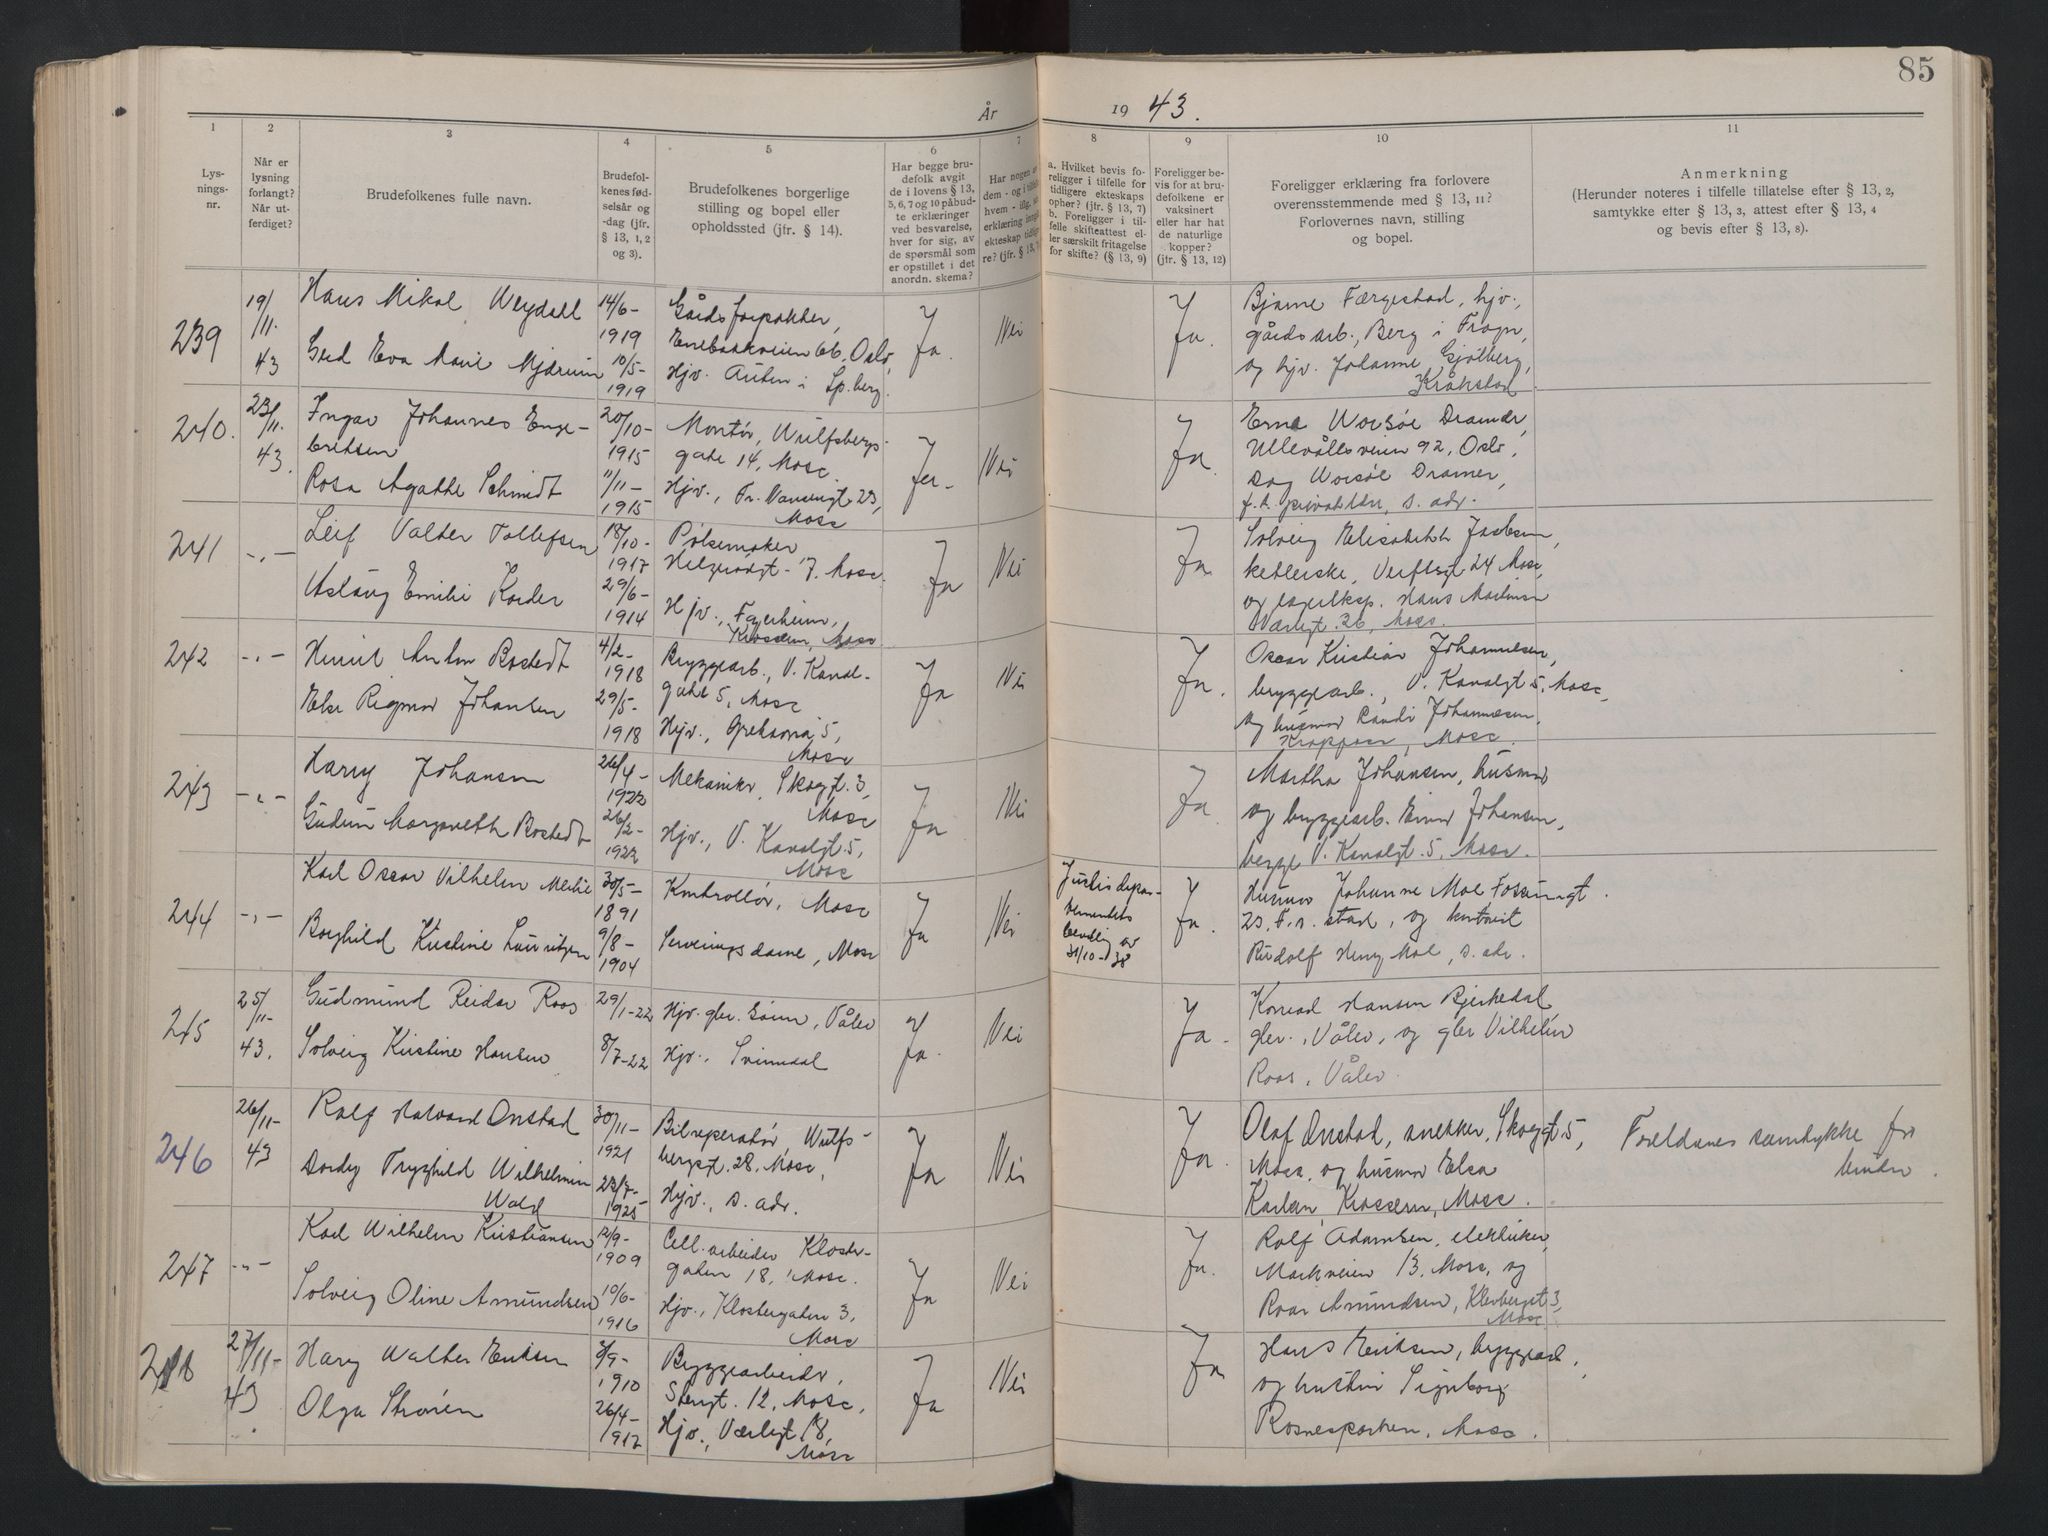 85
År 19 43.
1 2 3 4 5 6 7 8 9 10 11
Lys-
nings-
nr.
Når er
lysning
forlangt?
Når ut-
ferdiget?
Brudefolkenes fulle navn.
Brudefol-
kenes fød-
selsår og
-dag (jfr.
§ 13, 1, 2
og 3).
Brudefolkenes borgerlige
stilling og bopel eller
opholdssted (jfr. § 14).
Har begge bru-
defolk avgit
de i lovens § 13,
5, 6, 7 og 10 påbud-
te erklæringer
ved besvarelse,
hver for sig, av
de spørsmål som
er opstillet i det
anordn. skema?
Har nogen av
dem - og i tilfelle
hvem - iflg.
erklæring inngått
ekteskap tidlige-
re? (jfr. § 13,
a. Hvilket bevis fo-
religger i tilfelle for
tidligere ekteskaps
ophør? (jfr. § 13, 7)
b. Foreligger i til-
felle skifteattest el-
ler særskilt fritagelse
for skifte? (§ 13, 9)
Foreligger be-
vis for at bru-
defolkene er
vaksinert
eller har hat
de naturlige
kopper?
(jfr. § 13, 12)
Foreligger erklæring fra forlovere
overensstemmende med § 13, 11?
Forlovernes navn, stilling
og bopel.
Anmerkning
(Herunder noteres i tilfelle tillatelse efter § 13, 2,
samtykke efter § 13, 3, attest efter § 13, 4
og bevis efter § 13, 8).
239
19/
11.
43
Hans Mikal Weydahl
Gud Eva Marie Mjærum
14/6-
1919
10/5-
1919
Gårdsforpakter,
Enebakkveien 66, Oslo,
Hjv. Auten i Sp.berg.
Ja.
Nei
Ja.
Bjarne Færgestad, hjv.,
gårdsarb., Berg i Frogn,
og hjv. Johanne Gjølberg,
Kråkstad
240.
23/11.
43.
Ingar Johannes Enge-
bretsen
Rosa Agathe Schmidt
20/10-
1915
11/11-
1915
Montør, Wulfsbergs-
gate 14, Moss.
Hjv., Fr. Nansensgt. 23,
Moss
Ja.
Nei
Ja.
Erna Worsöe Dramer,
Ullevålsveien 92, Oslo,
Dag Worsöe Dramer,
f.t. privatlær, s. adr.
241
-"-
Leif Valter Tollefsen
Aslaug Emilie Korder
18/10-
1917
29/6-
1914
Pølsemaker
Helgerødgt. 7. Moss.
Hjv., Fagerheim,
Krossern, Moss
Ja
Nei
Ja
Solveig Elisabeth Jacobsen,
kelnerske, Verftsgt 24 Moss,
og lagereksp. Hans Martinsen
Værlegt. 36, Moss.
242
-"-
Anton Bostedt
Else Rigmor Johansen
4/2-
1918
29/5-
1918
Bryggearb., V. Kanal-
gate 5, Moss
Hjv., 5,
Moss
Ja
Nei
Ja.
Oscar Kristian Johannesen,
bryggearb., V. Kanalgt 5, Moss,
og husmor Randi Johannesen.
Krapfoss, Moss.
243
-"-
Harry Johansen
Gudrun Margareth Bostedt
26/4-
1922
26/2-
1922
Mekaniker, Skogt. 3,
Moss
Hjv., V. Kanalgt. 5,
Moss
Ja
Nei
Ja.
Martha Johansen, husmor
og bryggearb. Einar Johansen,
begge V. Kanalgt. 5, Moss.
244
-"-
Karl Oscar Vilhelm Melbie
Borghild Kristine Lauritzen
30/5-
1891
9/8-
1904
Kontrollør, Moss
Serveringsdame, Moss
Ja
Nei
Justisdepar-
tementets
bevilling av
31/10-38
Ja.
Husmor Johanne Moe, Fossumgt.
23. F. r. stad, og kontorist
Rudolf Henry Moe, s. adr.
245
25/
11-
43.
Gudmund Reidar Roos
Solveig Kristine Hansen
29/1-22
8/7-22
Hjv. gbr. sønn, Våler
Hjv., Svinndal
Ja.
Nei
Ja.
Konrad Hansen Bjerkedal
gbr., Våler, og gbr Vilhelm
Roos, Våler.
246
26/11-
43
Rolf Halvard Onstad
Dordy Tryghild Wilhelmine
Wold
30/11-
1921
23/7-
1925
Bilreperatør, Wulfs-
bergsgt. 28, Moss,
Hjv., s. adr.
Ja
Nei
Ja.
Olaf Onstad, snekker, Skogt. 5,
Moss, og husmor Elsa
Karlsen, Krossern, Moss.
Foreldrenes samtykke for
bruden.
247
-"-
Karl Wilhelm Kristiansen
Solveig Oline Amundsen
12/9-
1909
10/6-
1916
Cell. arbeider Kloster-
gaten 18, Moss.
Hjv., Klostergaten 3,
Moss
Ja
Nei
Ja.
Rolf Adamsen, elektriker,
Markveien 13, Moss, og
Roar Amundsen, Klevbergst 3,
Moss
248
27/11-
43.
Harry Walther Eriksen
Olga Strøien
3/9-
1910
26/4-
1912
Bryggearbeider,
Stengt. 12, Moss,
Hjv., Værlegt. 18,
Moss
Ja
Nei
Ja
Hans Eriksen, bryggearb.,
og hustru Signborg
Rosnesparken, Moss.